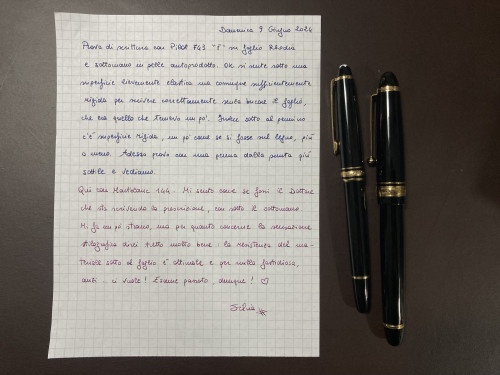 Domenica 9 Giugno 2024
Prova di scrittura con Pilot 743 "F" su foglio Rhodia
e sottomano in pelle autoprodotto. Ok si sente sotto una
superficie lievemente elastica ma comunque sufficientemente
rigida per scrivere correttamente senza bucare il foglio,
che era quello che temevo un po'. Invece sotto al pennino
c'è superficie rigida, un po' come se si fosse sul legno, più
o meno. Adesso provo con una penna dalla punta più
sottile e vediamo.
Qui con Montblanc 144. Mi sento come se fossi il Dottore
che sta scrivendo la prescrizione, con sotto il sottomano.
Mi fa un po' strano, ma per quanto concerne la sensazione
stilografica direi tutto molto bene: la resistenza del ma-
teriale sotto al foglio è ottimale e per nulla fastidiosa,
anzi.. ci vuole! Esame passato, dunque! ♡